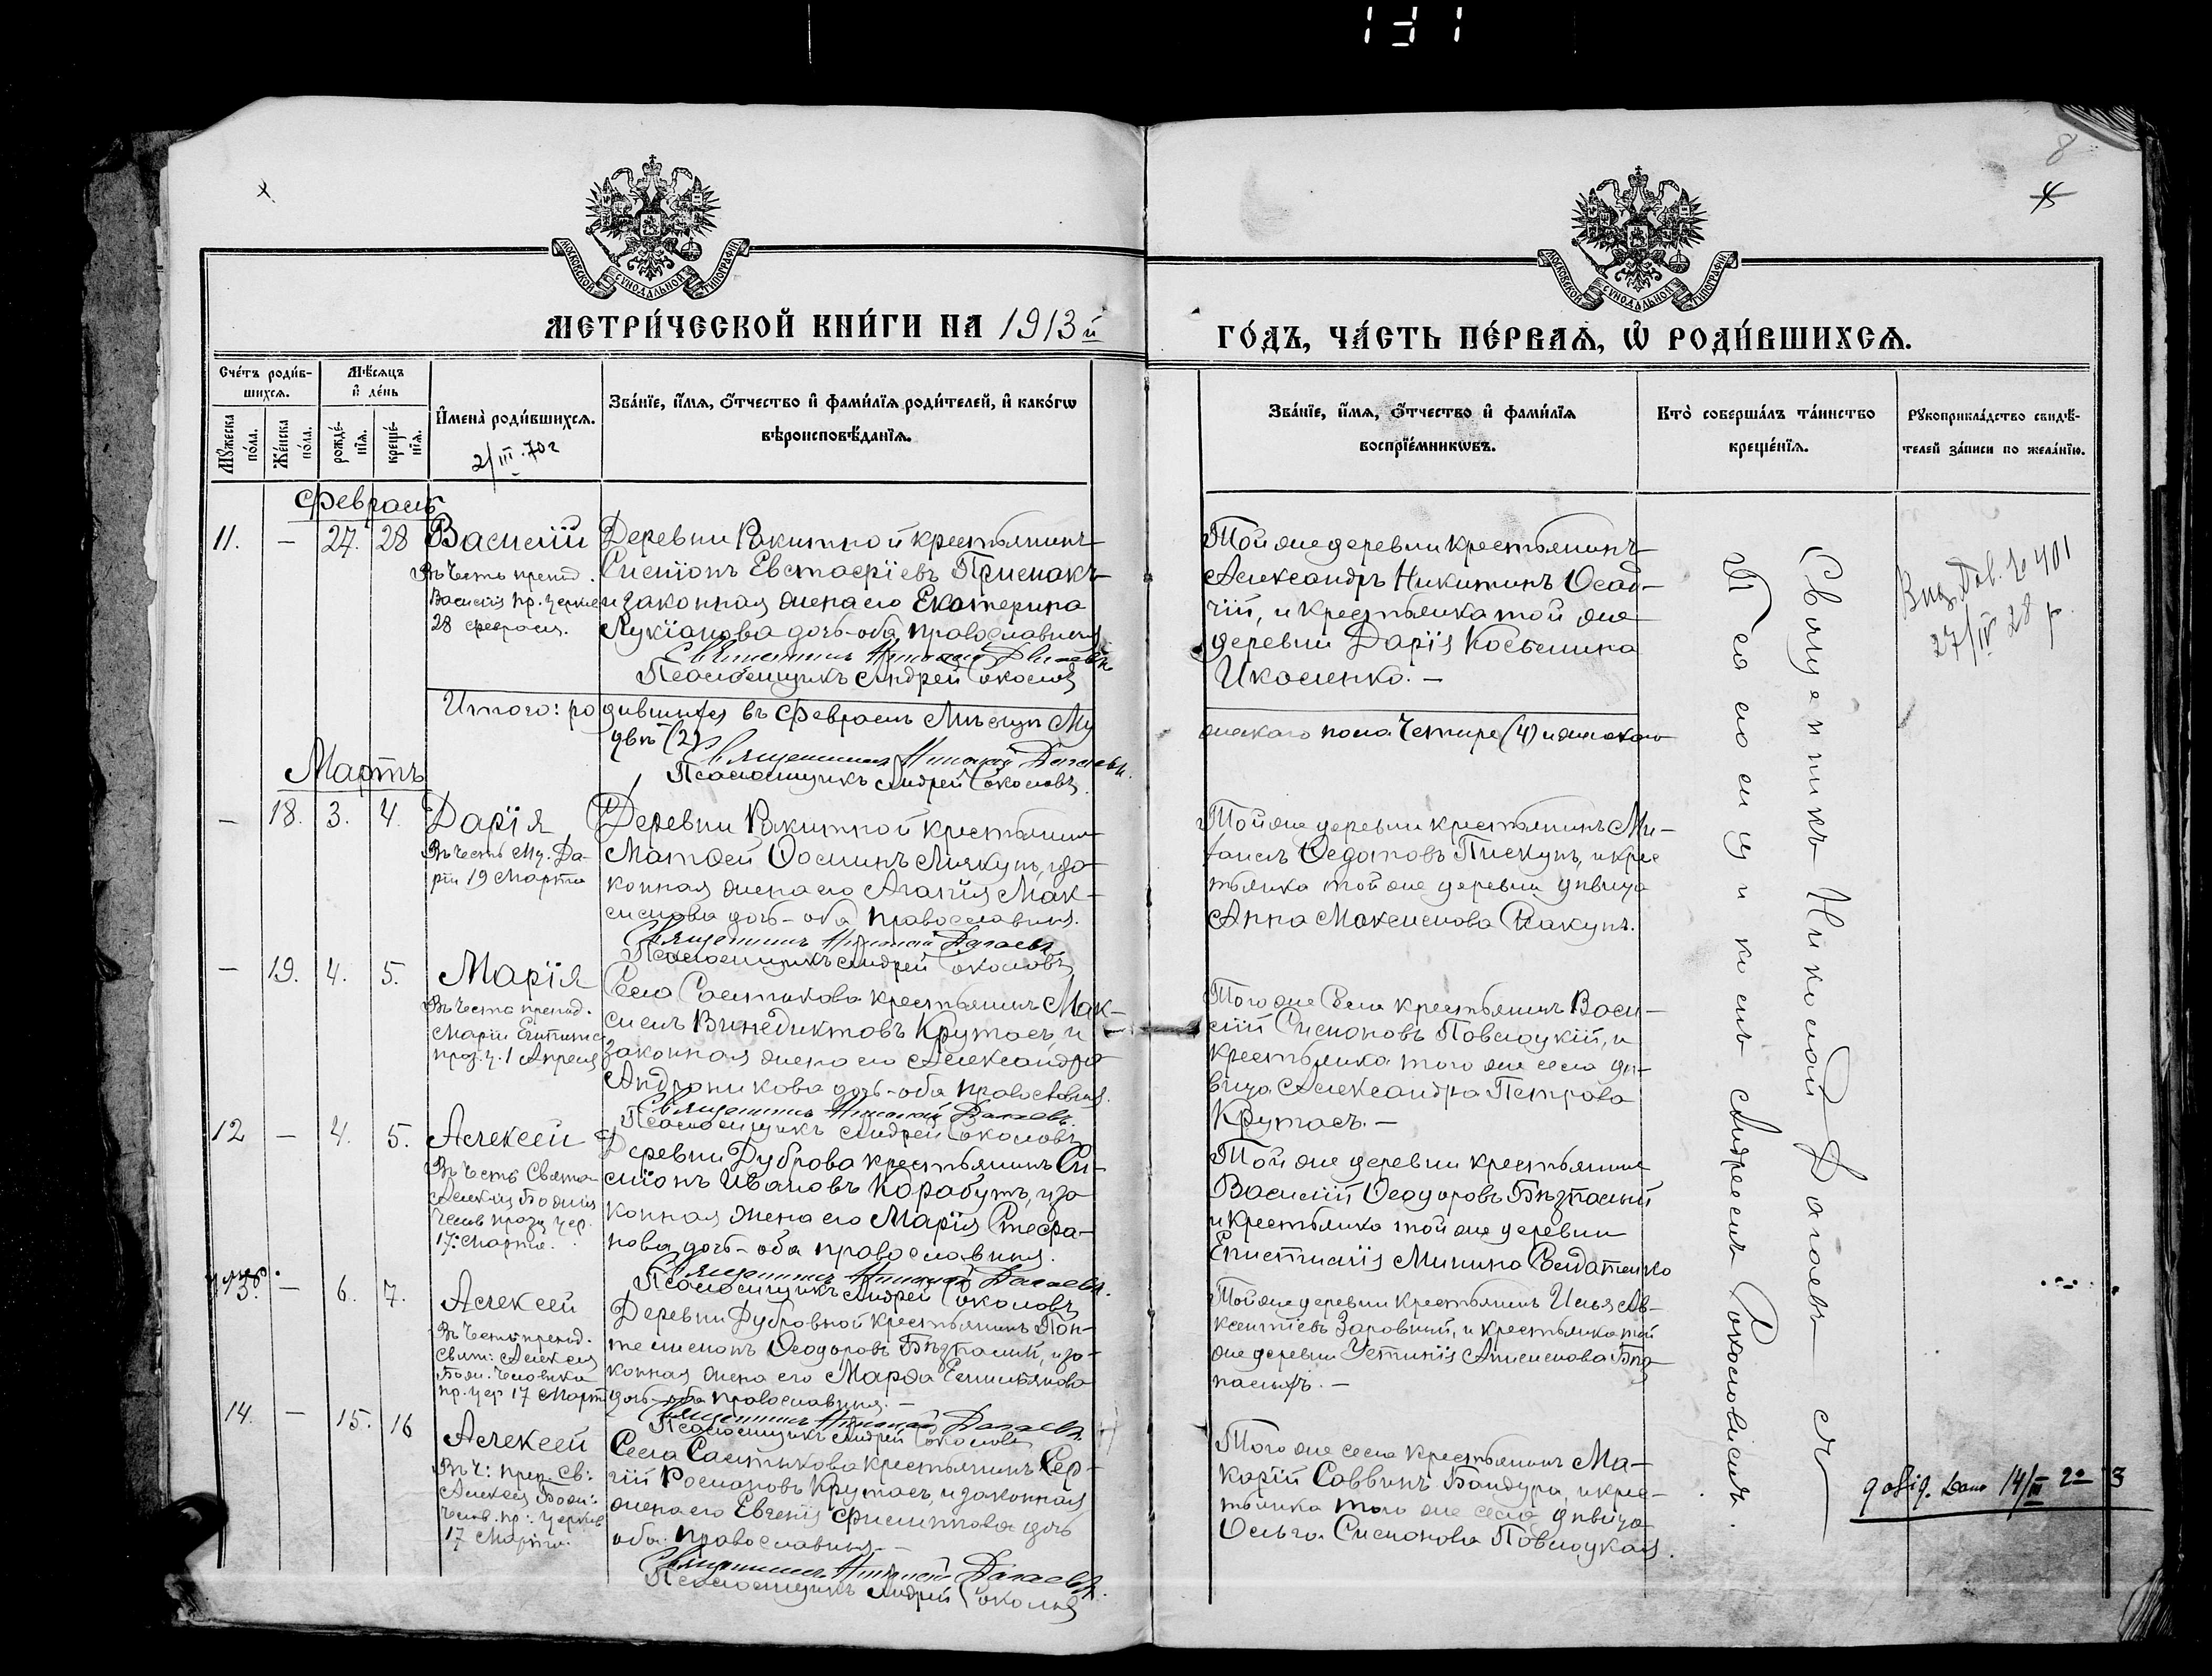 8
МЕТРИ́ЧЕСКОЙ КНИ́ГИ НА 1913 й
ГО́ДЪ, ЧА́СТЬ ПЕ́РВАѦ, Ѽ РОДИ́ВШИХСѦ.
МОСКОВСКОЙ СѴНОДАЛЬНОЙ ТИПОГРАФІИ
МОСКОВСКОЙ СѴНОДАЛЬНОЙ ТИПОГРАФІИ
Сче́тъ роди́в-
шихсѧ.
Мꙋжеска по́ла.
Же́нска по́ла.
Мѣ́сѧцъ
и҆ де́нь
рожде́-
нїѧ.
креще́-
нїѧ.
И҆мена̀ роди́вшихсѧ.
2/III.70г
Зва́нїе, и҆́мѧ, ѻ҆́тчество и҆ фами́лїѧ роди́телей, и҆ како́гѡ
вѣроисповѣ́данїѧ.
Зва́нїе, и҆́мѧ, ѻ҆́тчество и҆ фами́лїѧ
воспрїе́мникѡвъ.
Кто̀ соверша́лъ та́инство
креще́нїѧ.
Рꙋкоприкла́дство свидѣ́-
телей за́писи по жела́нїю.
Февраль
11. — 27. 28 Василій
Въ честь препод.
Василія пр. церков
28 февраля.
Деревни Ракитной крестьянинъ
Симіонъ Евстафіевъ Примакъ
и законная жена его Екатерина
Лукіанова дочь - оба православныя
Священникъ Николай
Псаломщикъ Андрей Соколовъ
Той же деревни крестьянинъ
Александръ Никитинъ Осад-
чій, и крестьянка той же
деревни Дарія Косьмина
Икаленко. —
Итого: родившихся въ Февралѣ Мѣсяцѣ Му
жескаго пола Четыре (4) и женскаго
двѣ (2)
Священникъ Николай
Псаломщикъ Андрей Соколовъ
Мартъ
— 18. 3. 4. Дарія
Въ честь Му. Да-
ріи 19 Марта
Деревни Ракитной крестьянинъ
Матѳей Ѳоминъ и за-
конная жена его Агапія Мак-
симова дочь - оба православныя.
Священникъ Николай
Псаломщикъ Андрей Соколовъ
Той же деревни крестьянинъ Ми-
хаилъ Ѳедотовъ Пискунъ, и крес
тьянка той же деревни дѣвица
Анна Максимова
— 19. 4. 5. Марія
Въ честь препод.
Маріи Египетс.
праз. ц. 1 Апреля
Села Салтыкова крестьянинъ Мак-
симъ Винедиктовъ Крутась, и
законная жена его Александра
Андроникова дочь - оба православныя.
Священникъ Николай
Псаломщикъ Андрей Соколовъ
Того же Села крестьянинъ Васи-
лій Симоновъ Повлоцкій, и
крестьянка того же села дѣ-
вица Александра Петрова
Крутась. —
12 — 4. 5. Алексей
Въ честь Свята
Алексія Божія
Челов. празд. цер.
17: Марта.
Деревни Дуброва крестьянинъ Си-
міонъ Ивановъ Карабутъ, и за-
конная жена его Марія Стефа-
нова дочь - оба православныя.
Священникъ Николай
Псаломщикъ Андрей Соколовъ
Той же деревни крестьянинъ
Василій Ѳеодоровъ Безпалый
и крестьянка той же деревни
Епистимія Минина
13. — 6. 7. Алексей
Въ честь препод.
свят: Алексея
Бож. Человека
пр. цер 17 Март
Деревни Дубровной крестьянинъ Пан-
телимонъ Ѳеодоровъ Безпалый, и за-
конная жена его Марѳа Емильянова
дочь - оба православныя. —
Священникъ Николай
Псаломщикъ Андрей Соколовъ
Той же деревни крестьянинъ Илья Ав-
ксентіевъ Заровный, и крестьянка той
же деревни Устинія Анисимова Без-
палыхъ. —
14. — 15. 16 Алексей
Въ ч: преп. Св:
Алексея Божі:
челов. пр: церков
17 Марта.
Села Салтыкова крестьянинъ Сер-
гій Романовъ Крутась, и законная
жена его Евгенія Филиппова дочь
оба православныя. —
Священникъ Николай
Псаломщикъ Андрей Соколовъ
Того же села крестьянинъ Ма-
карій Саввинъ Бандура, и крес-
тьянка того же села дѣвица
Ольга Симонова Повлоцкая.
Священникъ Николай
Псаломщикомъ Андреемъ
27/IV 28 р.
14/III